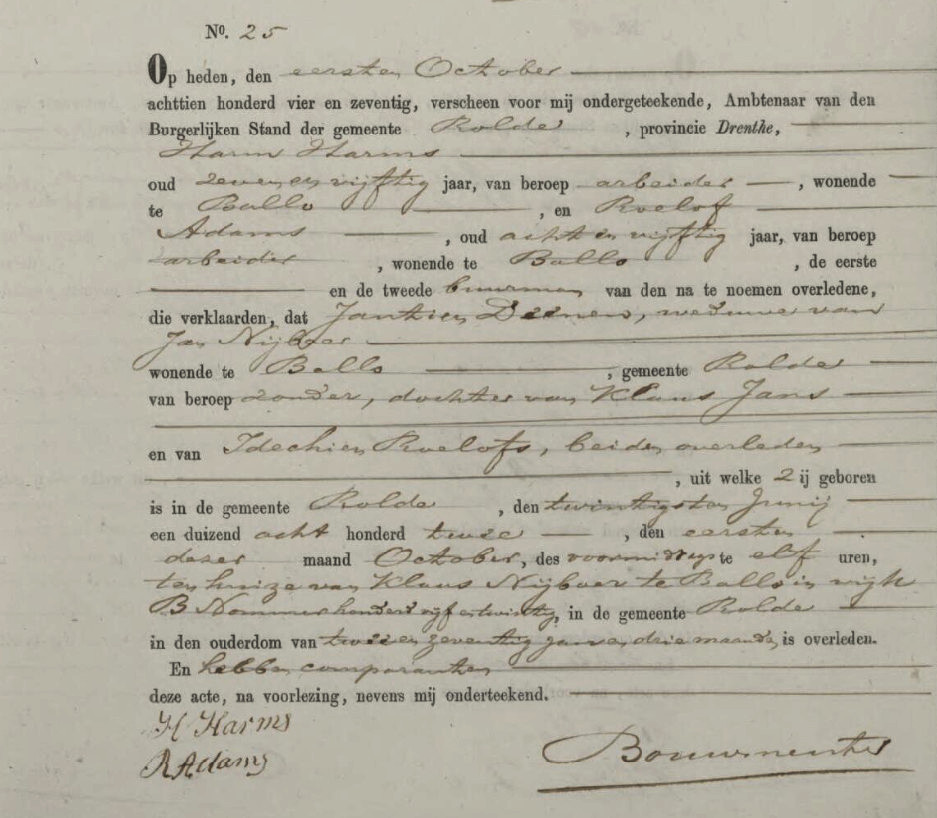 No. 25
Op heden, den eersten October
achttien honderd vier en zeventig, verscheen voor mij ondergeteekende, Ambtenaar van den
Burgerlijken Stand der gemeente Rolde, provincie Drenthe,
Harm Harms
oud zeven en vijftig jaar, van beroep arbeider, wonende
te Ballo, en Roelof
Adams, oud acht en vijftig jaar, van beroep
arbeider, wonende te Ballo, de eerste
en de tweede buurman van den na te noemen overledene,
die verklaarden, dat Jantien, weduwe van
Jan Nijboer
wonende te Ballo, gemeente Rolde
van beroep zonder, dochter van Klaas Jans
en van Idechien Roelofs, beiden overleden
, uit welke Zij geboren
is in de gemeente Rolde, den twintigsten Junij
een duizend acht honderd twee, den eersten
dezer maand October, des voormiddags te elf uren,
ten huize van Klaas Nijboer te Ballo in wijk
B Nommer honderd vijf en twintig, in de gemeente Rolde
in den ouderdom van twee en zeventig jaren drie maanden, is overleden.
En hebben comparanten
deze acte, na voorlezing, nevens mij onderteekend.
H Harms
R Adams